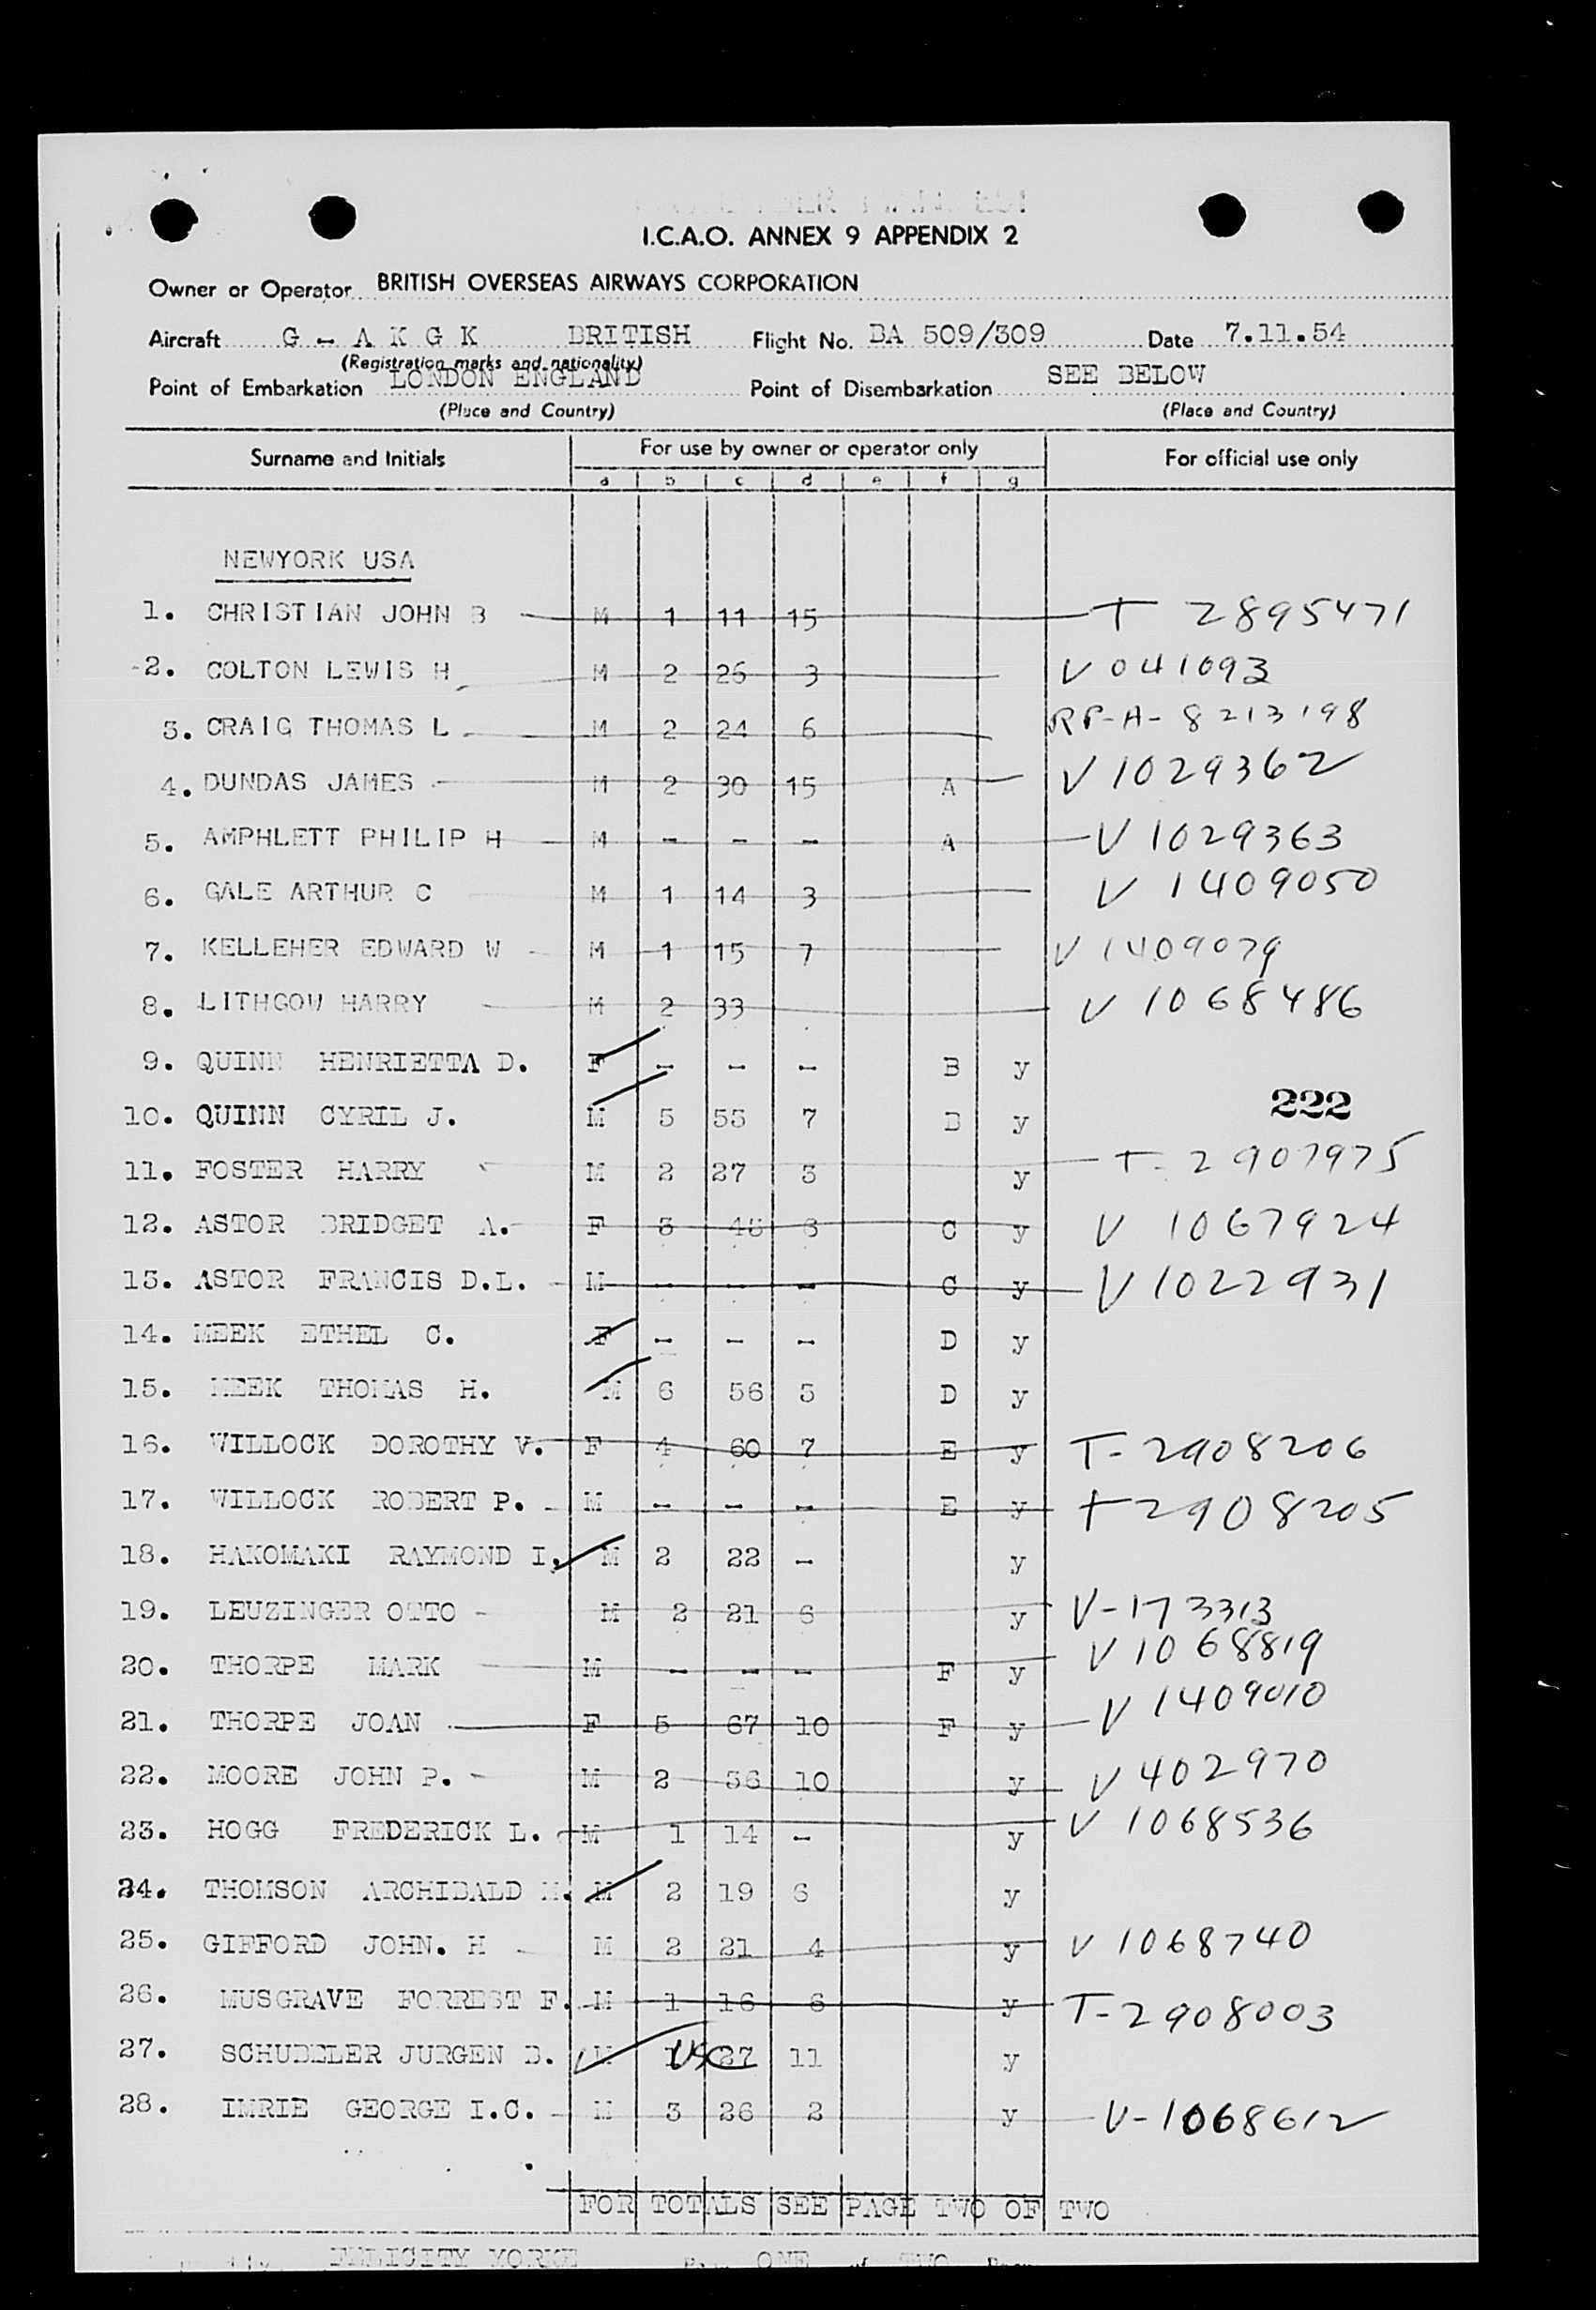 I.C.A.O. ANNEX 9 APPENDIX 2
Owner or Operator BRITISH OVERSEAS AIRWAYS CORPORATION
Aircraft G - A K G K BRITISH Flight No. BA 509/309 Date 7.11.54
(Registration marks and nationality)
Point of Embarkation LONDON ENGLAND Point of Disembarkation SEE BELOW
(Place and Country) (Place and Country)
Surname and Initials For use by owner or operator only For official use only
a b c d e f g
NEWYORK USA
1. CHRISTIAN JOHN B M 1 11 15 T 2895471
2. COLTON LEWIS H M 2 26 3 V 041093
3. CRAIG THOMAS L M 2 24 6 RP-A-8213198
4. DUNDAS JAMES M 2 30 15 A V 1029362
5. AMPHLETT PHILIP H M - - - A V 1029363
6. GALE ARTHUR C M 1 14 3 V 1409050
7. KELLEHER EDWARD W M 1 15 7 V 1409079
8. LITHGOW HARRY M 2 33 V 1068486
9. QUINN HENRIETTA D. F - - - B y
222
10. QUINN CYRIL J. M 5 55 7 B y
11. FOSTER HARRY M 2 27 3 y T-2907975
12. ASTOR BRIDGET A. F 3 45 6 C y V 1067924
13. ASTOR FRANCIS D.L. M - - - C y V 1022931
14. MEEK ETHEL C. F - - - D y
15. MEEK THOMAS H. M 6 56 5 D y
16. WILLOCK DOROTHY V. F 4 60 7 E y T-2908206
17. WILLOCK ROBERT P. M - - - E y T2908205
18. HAKOMAKI RAYMOND I. M 2 22 - y
19. LEUZINGER OTTO M 2 21 6 y V-173313
20. THORPE MARK M - - - F y V 1068819
21. THORPE JOAN F 5 67 10 F y V 1409010
22. MOORE JOHN P. M 2 36 10 y V 402970
23. HOGG FREDERICK L. M 1 14 - y V 1068536
24. THOMSON ARCHIBALD M. M 2 19 6 y
25. GIFFORD JOHN. H M 2 21 4 y V 1068740
26. MUSGRAVE FORREST F. M 1 16 6 y T-2908003
27. SCHUBELER JURGEN B. M 1 USC 27 11 y
28. IMRIE GEORGE I.C. M 3 26 2 y V-1068612
FOR TOTALS SEE PAGE TWO OF TWO
FELICITY YORKE ONE of TWO